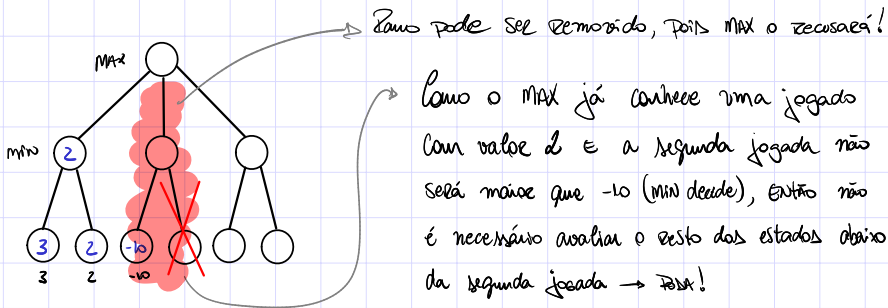 Ramo pode ser removido, pois MAX o recusará!
MAX
Como o MAX já conhece uma jogada
MIN 2
com valor 2 E a segunda jogada não
será maior que -10 (MIN decide), ENTÃO não
3 2 -10
é necessário avaliar o resto dos estados abaixo
3 2 -10
da segunda jogada → PODA!